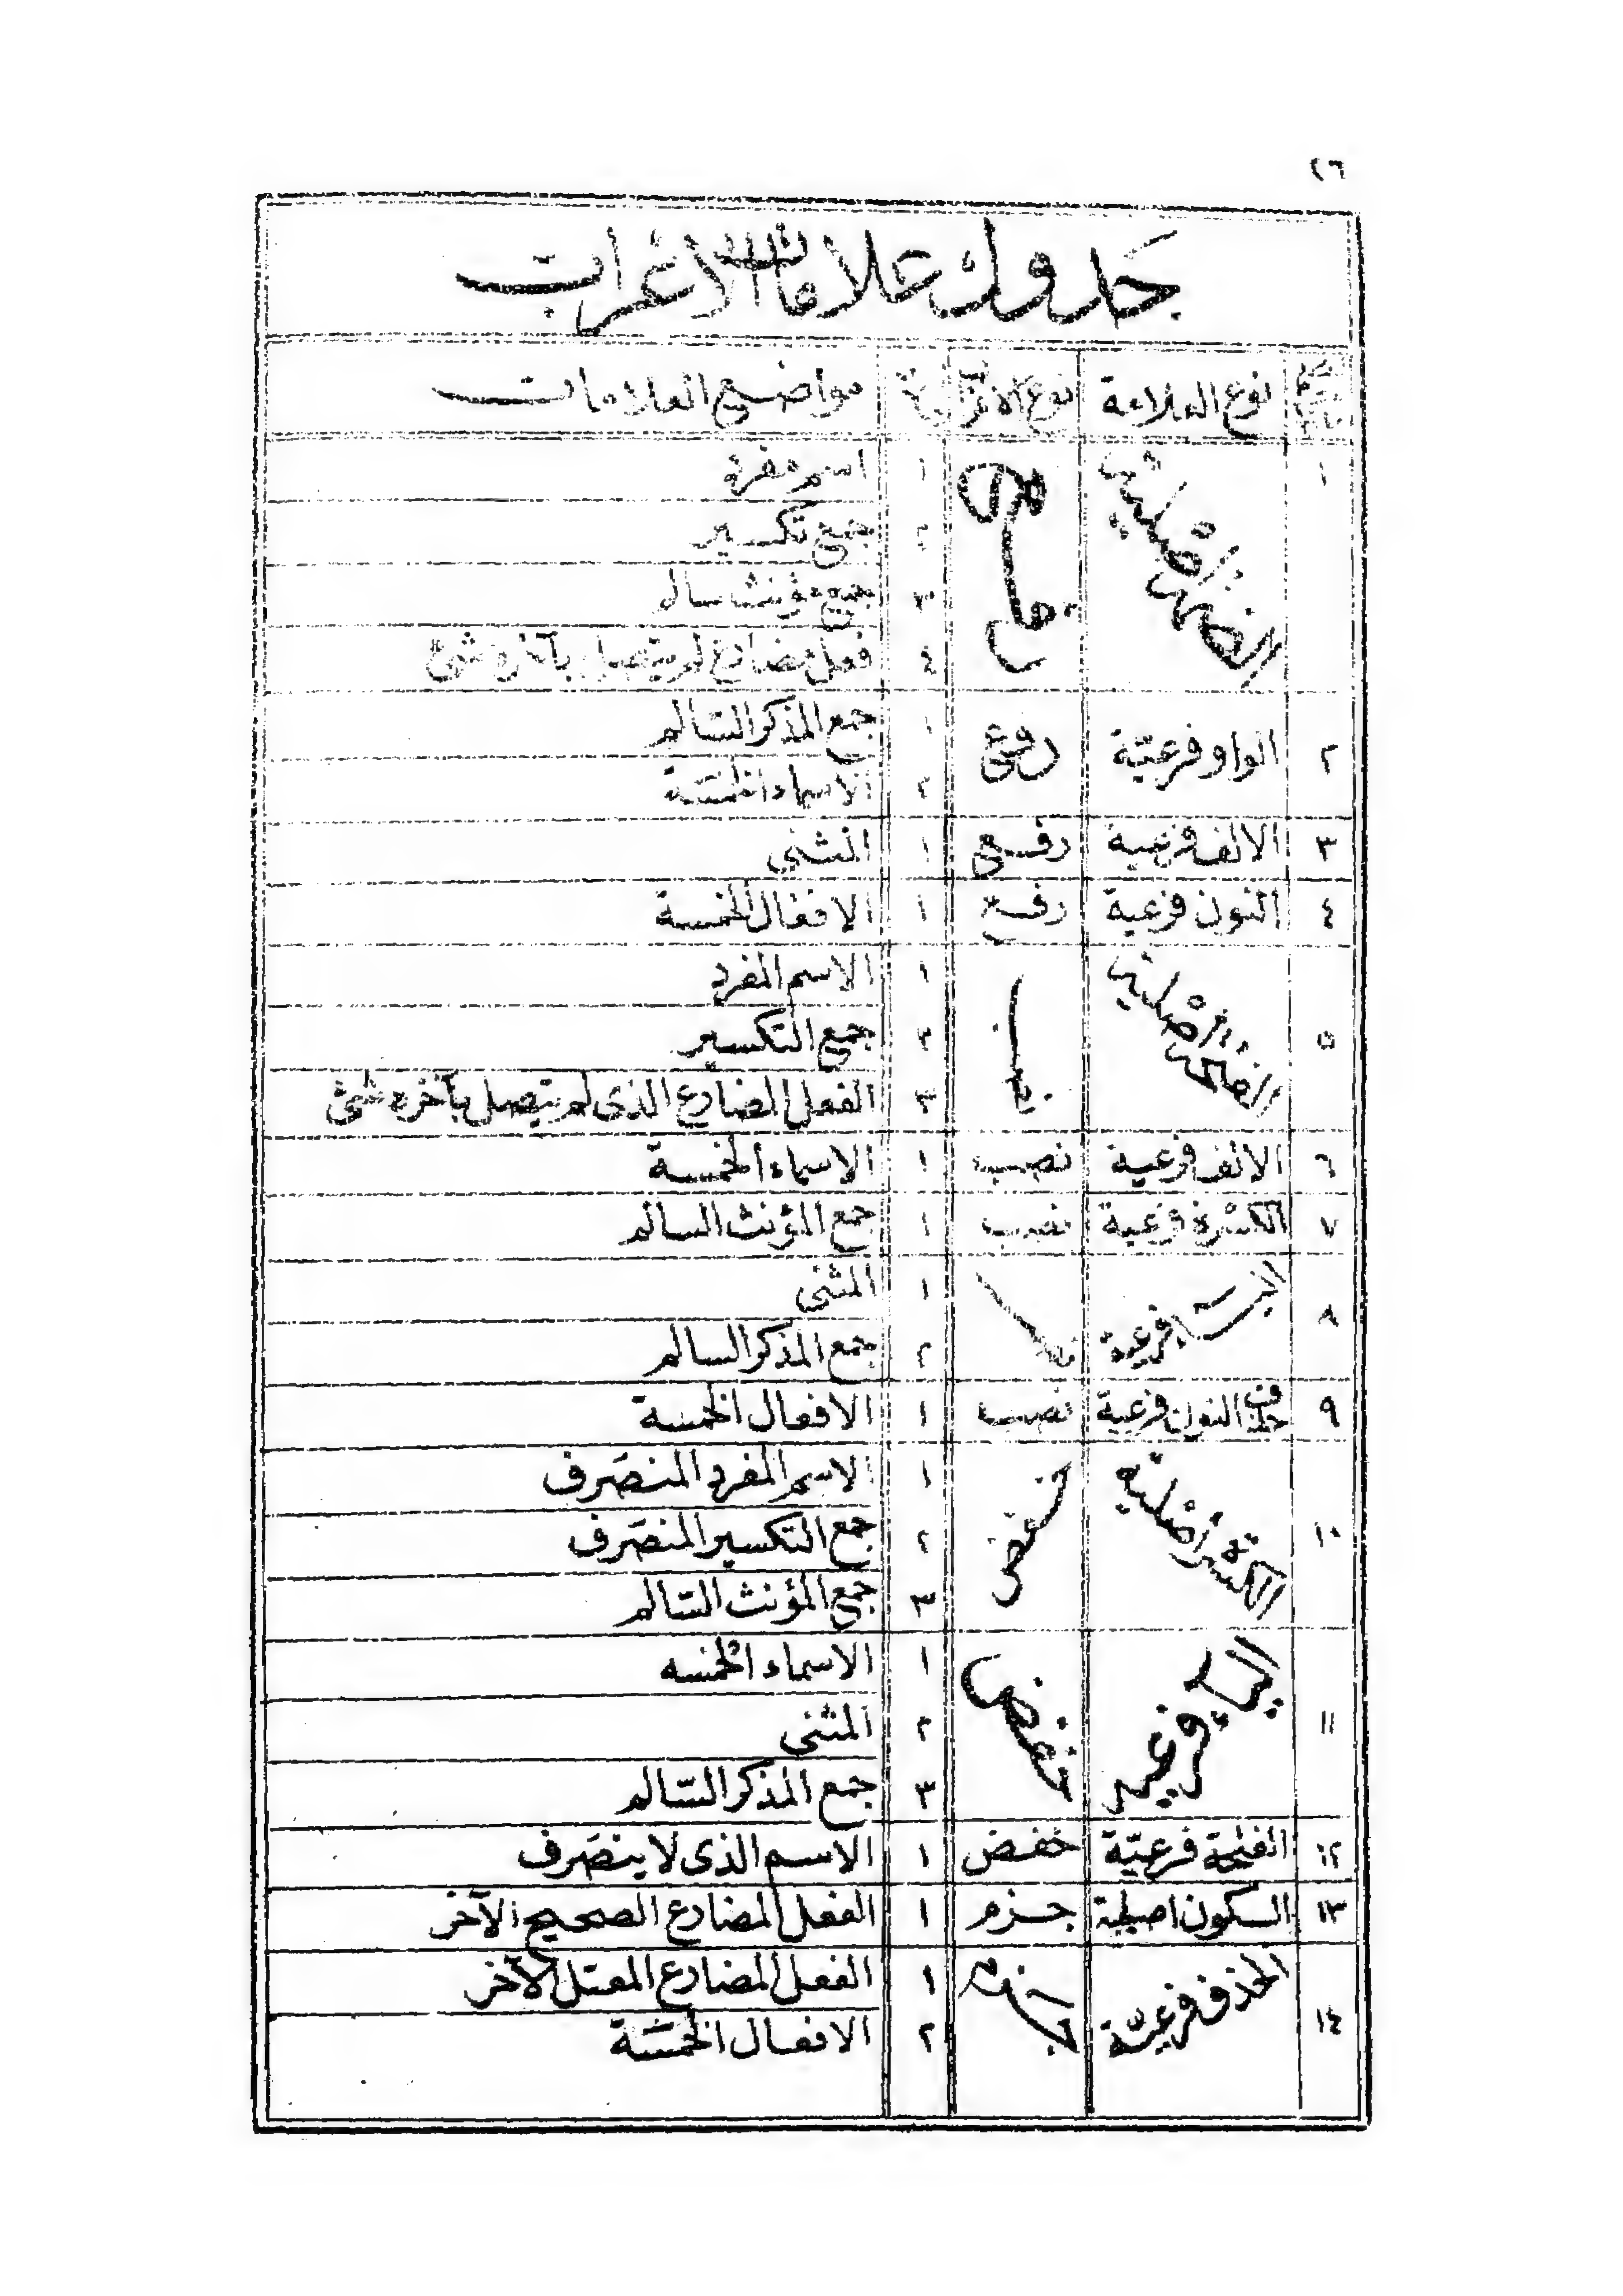 ٢٦
جدول علامات الاعراب
نوع العلامة نوع الاعراب مواضيع العلامات
١ الضمة أصلية رفع ١ اسم مفرد
٢ جمع تكسير
٣ جمع مؤنث سالم
٤ فعل مضارع لم يتصل بآخره شئ
٢ الواو فرعيّة رفع ١ جمع المذكر السّالم
٢ الاسماء الخمسَة
٣ الالف فرعية رفع ١ المثنى
٤ النون فرعية رفع ١ الافعال الخمسة
٥ الفتحة أصْلية نصب ١ الاسم المفرد
٢ جمع التكسير
٣ الفعل المضارع الذى لم يتصل بآخره شئ
٦ الالف فرعية نصب ١ الاسماء الخمسة
٧ الكسْرة فرعية نصب ١ جمع المؤنث السالم
٨ الياء فرعية نصب ١ المثنى
٢ جمع المذكر السالم
٩ حذف النون فرعية نصب ١ الافعال الخمسة
١٠ الكسرة أصْلية خفض ١ الاسم المفرد المنصَرف
٢ جمع التكسير المنصَرف
٣ جمع المؤنث السّالم
١١ الياء فرعية خفض ١ الاسماء الخمسه
٢ المثنى
٣ جمع المذكر السّالم
١٢ الفتحة فرعيّة خفض ١ الاسم الذى لا ينصَرف
١٣ السكون اصلية جزم ١ الفعل المضارع الصحيح الآخر
١٤ الحذف فرعيّة جزم ١ الفعل المضارع المعتل الآخر
٢ الافعال الخمسَة